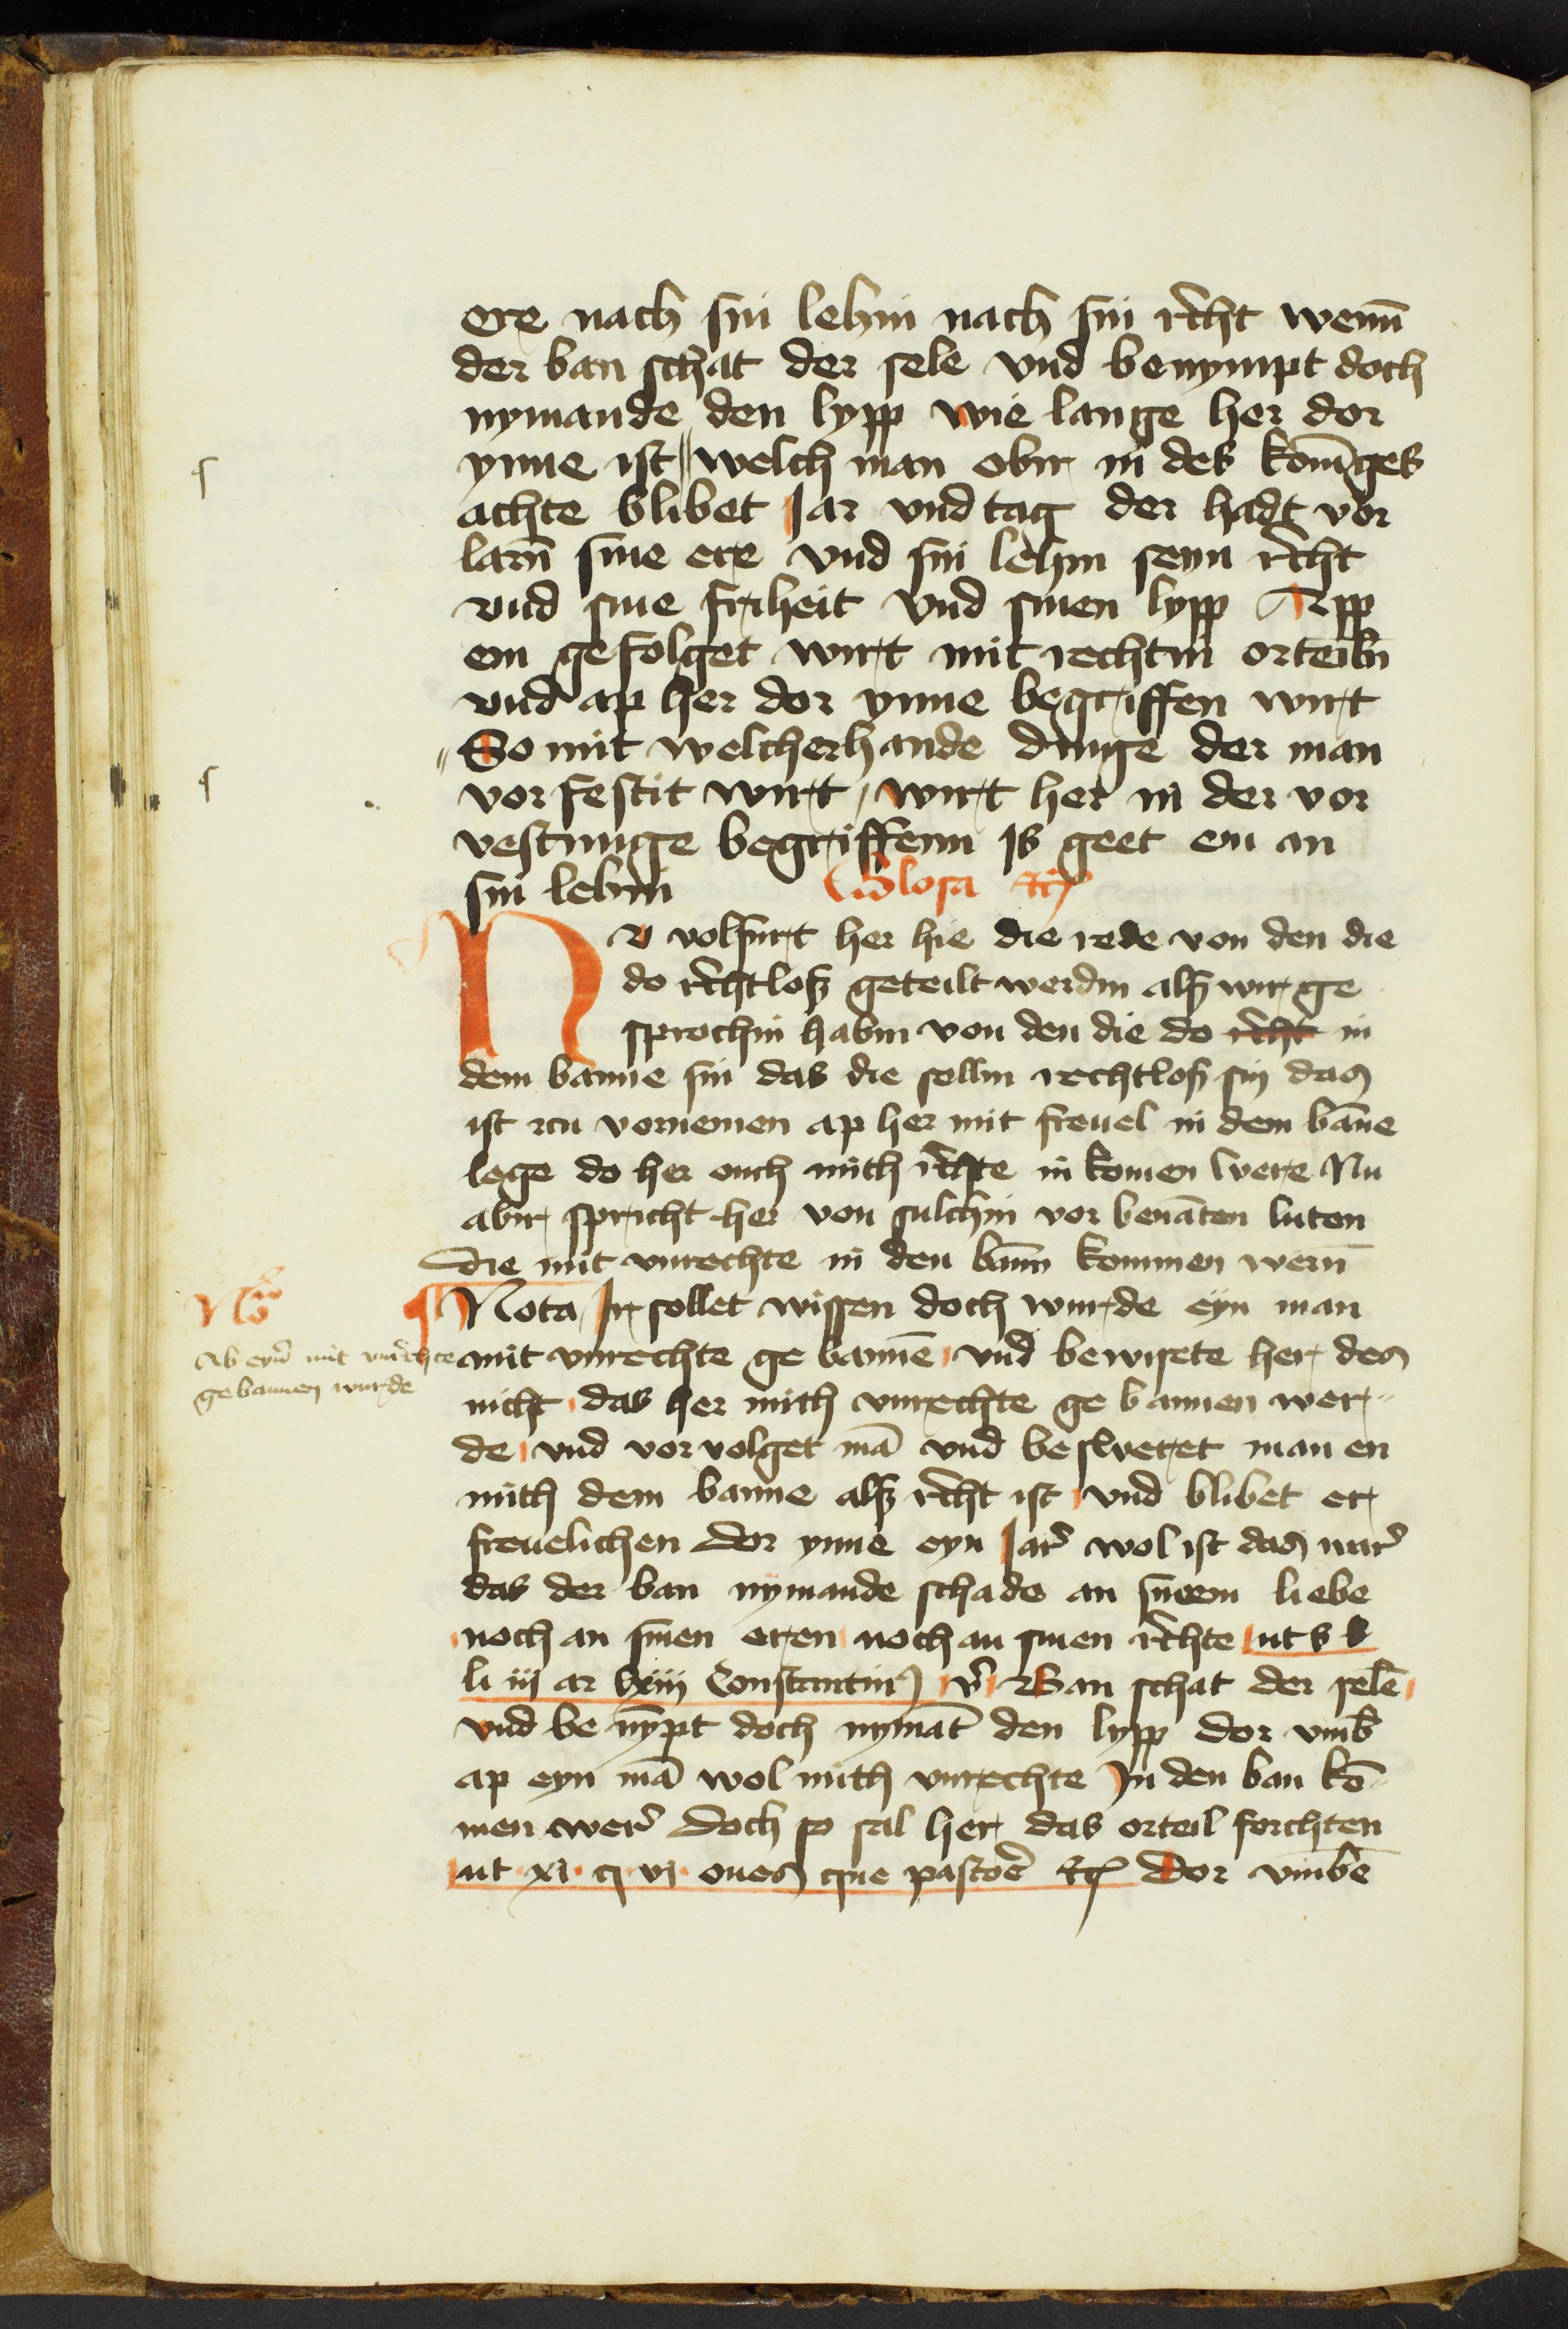 ere nach sin lehin nach sin rc̄ht wenn̄
der ban schat der sele vnd benympt doch
nymande den lypp wie lange her dor
ynne ist welch man obir in des kon̄iges
achte blibet Jar vnd tag der hadt vor
larn̄ sine ere vnd sin lehin seyn rc̄ht
vnd sine friheit vnd sinen lypp App
em gefolget wirt mit rechtin orteiln̄
vnd ap her dor ynne begriffen wirt
So mit welcherhande dinge der man
vor festit wirt / wirt her in der vor
vestunge begriffenn Js geet en an
sin lehin Glosa etc̄
Nv volfurt her hie die rede von den die
do rc̄htlosz geteilt werdin alsz wir ge
sprochin habin von den die do rc̄ht in
dem banne sin das die sollin rechtlosz sin das
ist czu vornemen ap her mit freuel in dem ban̄e
lege do her ouch mith rc̄hte in komen were Nu
abir spricht her von sulchin vor benan̄ten luten
die mit vnrechte in den bann̄ kommen wern̄
Nota Jr sollet wissen doch wurde eyn man
Ab eyn̄ mit vnrc̄hte
gebannen wurde
mit vnrechte ge banne͞ vnd bewisete her des
nicht das her mith vnrechte ge bannen wer=
de vnd vor volget ma͞ vnd besweret man en
mith dem banne alsz rc̄ht ist vnd blibet er
freuelichen dor ynne eyn Jar̄ wol ist das war̄
das der ban nymande schade an sineem liebe
noch an sinen eren noch an sinen rc̄hte ut s
li iij ar lxiij Constantin9 v̄ Ban schat der sele͞
vnd be nȳpt doch nyman̄t den lypp dor vmb̄
ap eyn ma͞ wol mith vnrechte Jn den ban ko͞=
men wer̄ doch so sal her das orteil forchten
ut xi q vj oues que pastor̄ etc̄ Dor vmbe͞